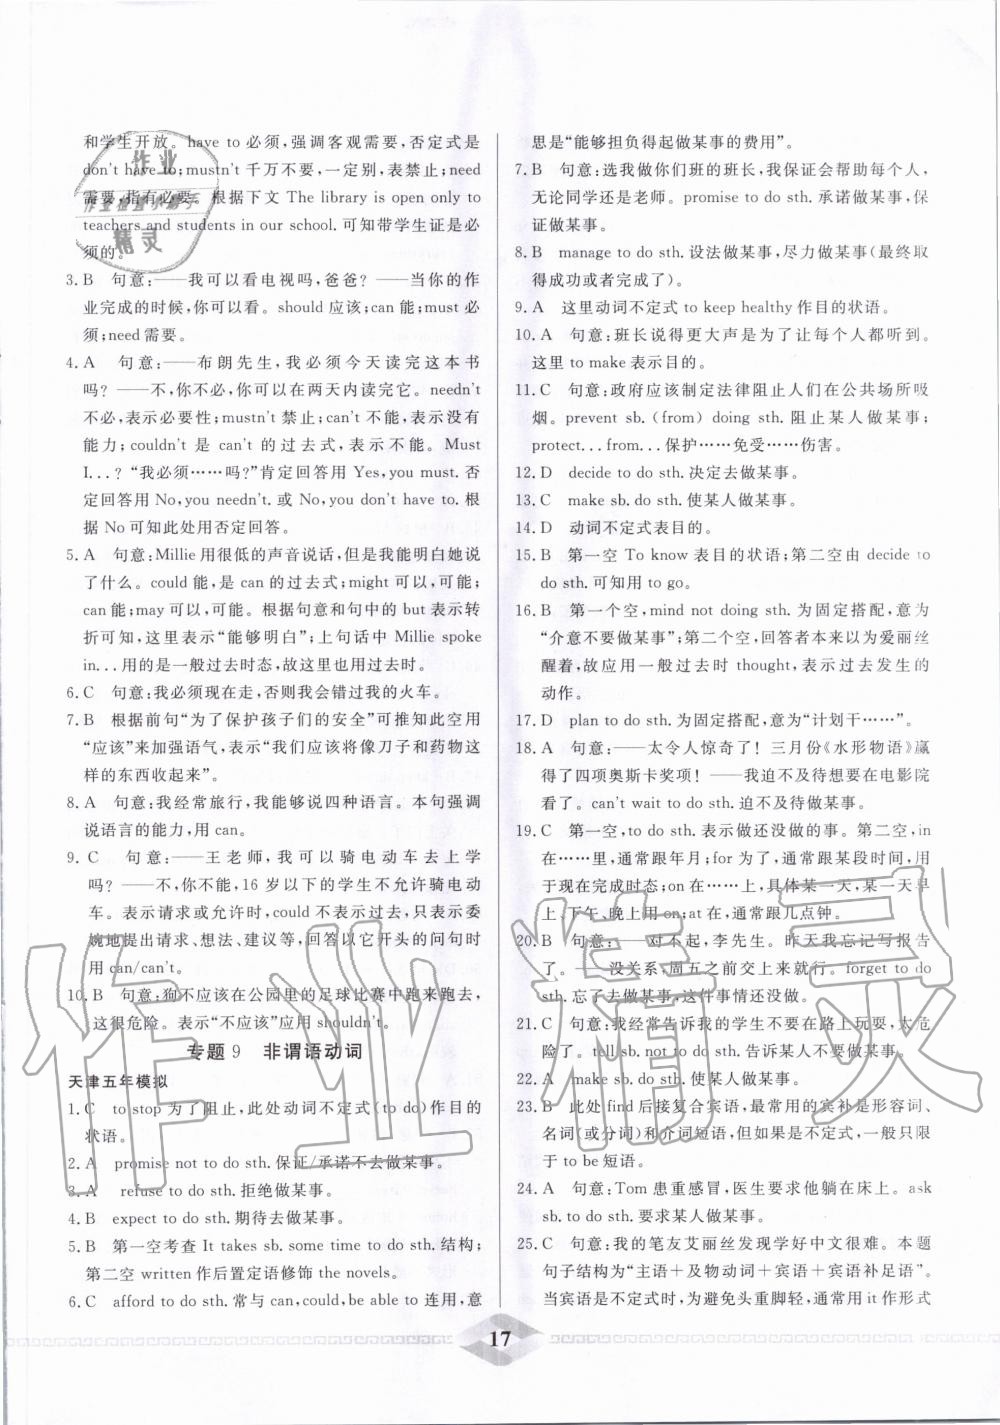 和学生开放。have to 必须,强调客观需要,否定式是
don't have to;mustn't 千万不要,一定别,表禁止;need
需要,指有必要。根据下文 The library is open only to
teachers and students in our school. 可知带学生证是必
须的。
3. B 句意:——我可以看电视吗,爸爸?——当你的作
业完成的时候,你可以看。should 应该;can 能;must 必
须;need 需要。
4. A 句意:——布朗先生,我必须今天读完这本书
吗?——不,你不必,你可以在两天内读完它。needn't
不必,表示必要性;mustn't 禁止;can't 不能,表示没有
能力;couldn't 是 can't 的过去式,表示不能。Must
I...?“我必须……吗?”肯定回答用 Yes,you must. 否
定回答用 No,you needn't. 或 No,you don't have to. 根
据 No 可知此处用否定回答。
5. A 句意:Millie 用很低的声音说话,但是我能明白她说
了什么。could 能,是 can 的过去式;might 可以,可能;
can 能;may 可以,可能。根据句意和句中的 but 表示转
折可知,这里表示“能够明白”;上句话中 Millie spoke
in... 用的是一般过去时态,故这里也用过去时。
6. C 句意:我必须现在走,否则我会错过我的火车。
7. B 根据前句“为了保护孩子们的安全”可推知此空用
“应该”来加强语气,表示“我们应该将像刀子和药物这
样的东西收起来”。
8. A 句意:我经常旅行,我能够说四种语言。本句强调
说语言的能力,用 can。
9. C 句意:——王老师,我可以骑电动车去上学
吗?——不,你不能,16 岁以下的学生不允许骑电动
车。表示请求或允许时,could 不表示过去,只表示委
婉地提出请求、想法、建议等,回答以它开头的问句时
用 can/can't。
10. B 句意:狗不应该在公园里的足球比赛中跑来跑去,
这很危险。表示“不应该”应用 shouldn't。
专题 9 非谓语动词
天津五年模拟
1. C to stop 为了阻止,此处动词不定式(to do)作目的
状语。
2. A promise not to do sth. 保证/承诺不去做某事。
3. A refuse to do sth. 拒绝做某事。
4. B expect to do sth. 期待去做某事。
5. B 第一空考查 It takes sb. some time to do sth. 结构;
第二空 written 作后置定语修饰 the novels.
6. C afford to do sth. 常与 can,could,be able to 连用,意
思是“能够担负得起做某事的费用”。
7. B 句意:选我做你们班的班长,我保证会帮助每个人,
无论同学还是老师。promise to do sth. 承诺做某事,保
证做某事。
8. B manage to do sth. 设法做某事,尽力做某事(最终取
得成功或者完成了)。
9. A 这里动词不定式 to keep healthy 作目的状语。
10. A 句意:班长说得更大声是为了让每个人都听到。
这里 to make 表示目的。
11. C 句意:政府应该制定法律阻止人们在公共场所吸
烟。prevent sb. (from) doing sth. 阻止某人做某事;
protect...from... 保护……免受……伤害。
12. D decide to do sth. 决定去做某事。
13. C make sb. do sth. 使某人做某事。
14. D 动词不定式表目的。
15. B 第一空 To know 表目的状语;第二空由 decide to
do sth. 可知用 to go.
16. B 第一个空,mind not doing sth. 为固定搭配,意为
“介意不要做某事”;第二个空,回答者本来以为爱丽丝
醒着,故应用一般过去时 thought,表示过去发生的
动作。
17. D plan to do sth. 为固定搭配,意为“计划干……”。
18. A 句意:——太令人惊奇了!三月份《水形物语》赢
得了四项奥斯卡奖项!——我迫不及待想要在电影院
看了。can't wait to do sth. 迫不及待做某事。
19. C 第一空,to do sth. 表示做还没做的事。第二空,in
在……里,通常跟年月;for 为了,通常跟某段时间,用
于现在完成时态;on 在……上,具体某一天,某一天早
上、下午、晚上用 on;at 在,通常跟几点钟。
20. B 句意:——对不起,李先生。昨天我忘记写报告
了。——没关系,周五之前交上来就行。forget to do
sth. 忘了去做某事,这件事情还没做。
21. C 句意:我经常告诉我的学生不要在路上玩耍,太危
险了。tell sb. not to do sth. 告诉某人不要做某事。
22. A make sb. do sth. 使某人做某事。
23. B 此处 find 后接复合宾语,最常用的宾补是形容词、
名词(或分词)和介词短语,但如果是不定式,一般只限
于 to be 短语。
24. A 句意:Tom 患重感冒,医生要求他躺在床上。ask
sb. to do sth. 要求某人做某事。
25. C 句意:我的笔友艾丽丝发现学好中文很难。本题
句子结构为“主语+及物动词+宾语+宾语补足语”。
当宾语是不定式时,为避免头重脚轻,通常用 it 作形式
17
作业
作业检查小帮手
精灵
作业精灵